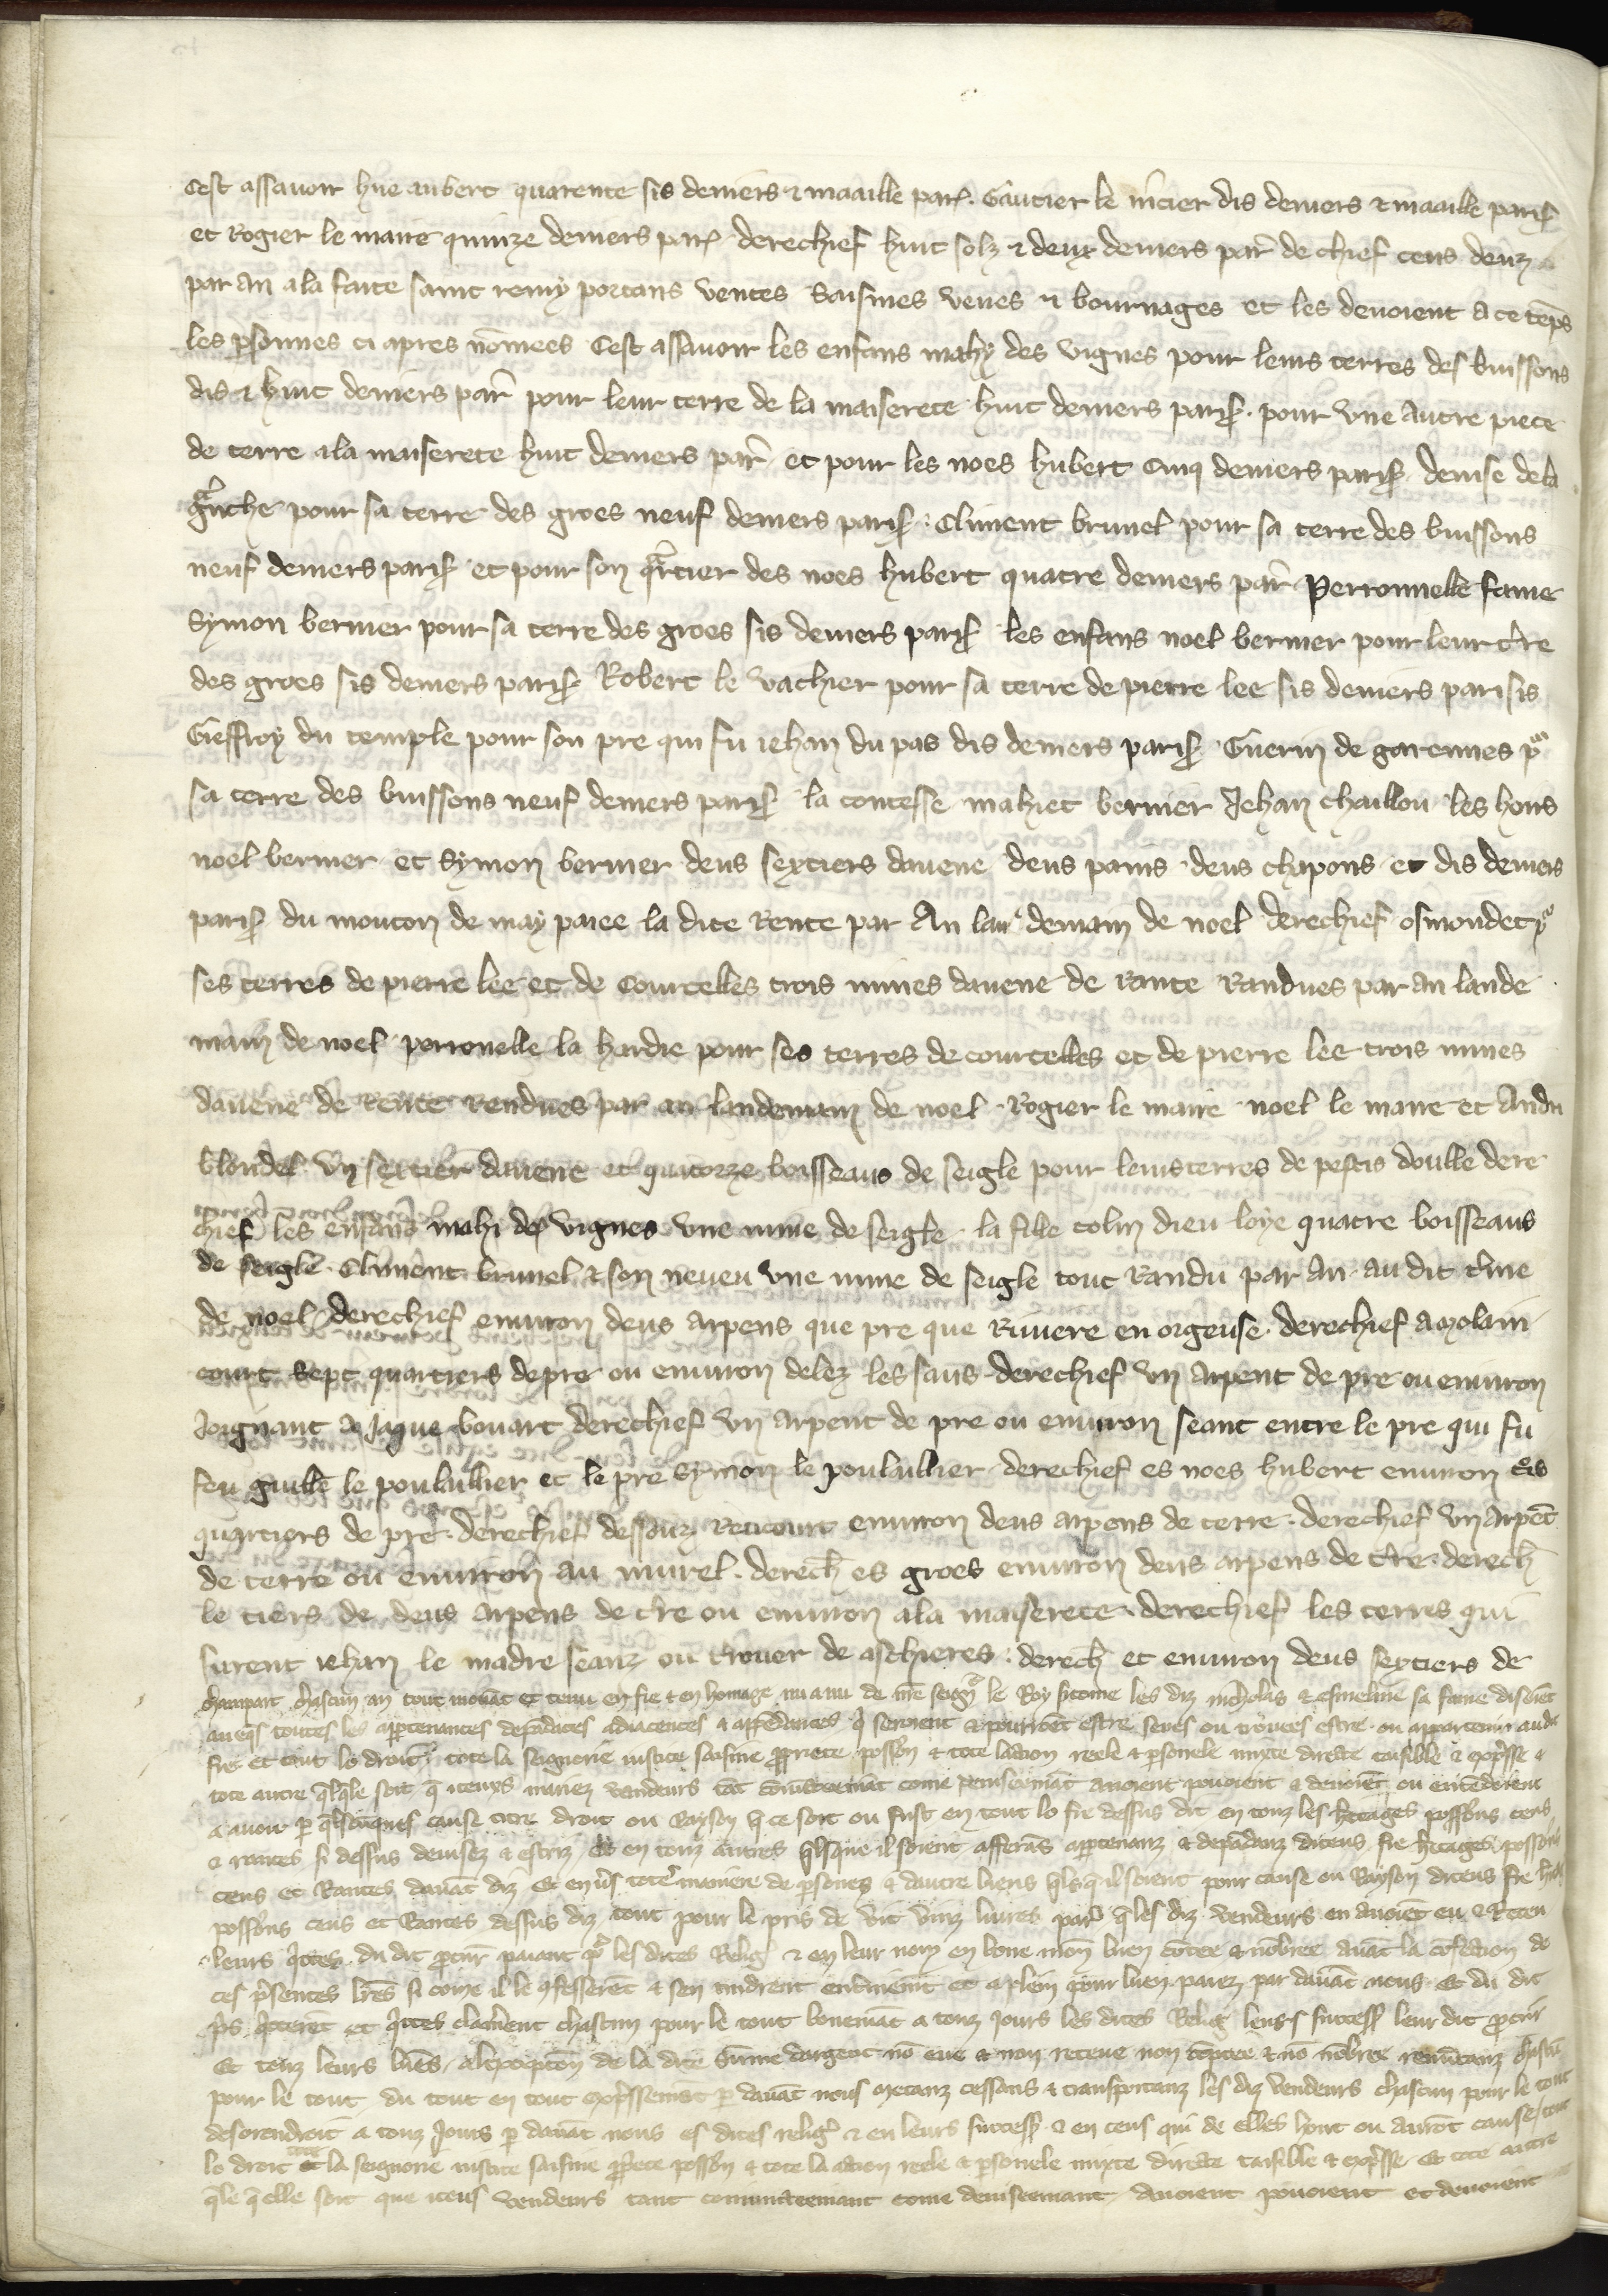 Cest assavoir hue aubert quarente sis deniers & maaille par. Gautier le mcier dis deniers & maaille paris
et Rogier le maire quinze deniers par derechief huit solz & deux deniers par de chief cens deuz
par an a la faite saint remy portans ventes saisines veues & bournages et les devoient a ce teps
les psonnes ci apres nomees Cest assavoir les enfans mahy des vignes pour leurs terres des buissons
dis & huit deniers par pour leur terre de la maiserete huit deniers paris. pour une autre piece
de terre a la maiserete huit deniers par et pour les noes hubert cinq deniers paris denise de la
gnche pour sa terre des groes neuf deniers paris. Climent brunel pour sa terre des buissons
neuf deniers paris et pour son qrtier des noes hubert quatre deniers par Perronnelle fame
Symon bernier pour sa terre des groes sis deniers paris les enfans noel bernier pour leur tre
des groes sis deniers paris Robert le vachier pour sa terre de pierre lee sis deniers parisis
Gieffroy du temple pour son pre qui fu iehan du pas dis deniers paris Guerin de garennes pr
sa terre des buissons neuf deniers paris la contesse mahiet bernier Jehan chaillou les hoirs
noel bernier et Symon bernier deus sextiers davene deus pains deus chapons et dis deniers
paris du mouton de may paiee la dite Rente par An lan demain de noel derechief osmondet pr
ses terres de pierre lee et de Courcelles trois mines davene de Rante Randues par an lande
main de noel perronelle la hardie pour ses terres de courcelles et de pierre lee trois mines
davene de Rente Rendues par an landemain de noel Rogier le maire noel le maire et Andri
blondel un sextier davene et quatorze boisseaus de seigle pour leurs terres de pestis doulle dere
chief les enfans mahi des vignes une mine de seigle la fille colin dieu loye quatre boisseaus
de seigle. Climent brunel & son neveu une mine de seigle tout Randu par an au dit tme
de noel derechief environ deus arpens que pre que Riviere en orgeuse. derechief a molain
court sept quartiers de pre ou environ delez les saus derechief un arpent de pre ou environ
Joignant a Jaque bouart derechief un arpent de pre ou environ seant entre le pre qui fu
feu guille le poulaillier et le pre Symon le poulaillier derechief es noes hubert environ tois
quartiers de pre. derechief dessouz Rencourt environ deus arpens de terre. derechief un arpet
de terre ou environ au murel. derech es groes environ deus arpens de tre. derech
le tiers de deus arpens de tre ou environ a la maiserete derechief les terres qui
furent iehan le madre seanz ou trouer de aschieres. derech et environ deus sextiers de
champart chascun an tout movat et tenu en fie & en homage nu a nu de nre seigr le Roy si come les diz nicholas & esmeline sa fame disoiet
aveqs toutes les aptenances depadaces adiacences & appedances q seroient & pourroiet estre seues ou trovees estre ou appartenir au dit
fie et tout lo droit tote la seignorie iustice saisine ppriete possion & tote laction reele & psonele mixte directe taisible & expsse &
tote autre qlqle soit q iceuxs mariez vendeurs tat coniuctemat come deviseemat avoient povoient & devoiet ou entedoient
a avoir p qlsoqques cause titre droit ou Rayson q ce soit ou fust en tout lo fie dessus dit en touz les hitages possions cens
& rantes si dessus devisez & escriz et en touz autres qlsque il soient afferas aptenanz & depadanz diceus fie hitages possions
cens et Rantes davat diz Et en vs tote maniere de psones & dautre biens qlsq il soient pour cause ou Rayson diceus fie
possions cens et Rantes dessus diz tout pour le pris de vit vinz livres par q les diz vendeurs en avoiet eu & Receu
leurs qittes du dit pcur paiant pr les dites Relig & en leur nom en bone mon bien cotee & nobree avat la cofection de
ces psentes lres si come il le qfesserēt & sen tindrent entierēmt et a plein pour bien paiez par davat nous Et du dit
ps qiterēt et qites clamerent chascun pour le tout bonemāt a touz Jours les dites Relig leurs success leur dit pcur
Et touz leurs biēs, a lexceptiō de la dite sūme dargent nō eue & non receue non coptee & nō nōbree renuciantz chascū
pour le tout du tout en tout expssemēt p davāt nous metanz cessans & transportanz les diz vendeurs chascun pour le tout
desorendroit a touz Jours p davāt nous es dites relig & en leurs success & en ceus qui de elles hont ou aurōt cause tout
lo droit tote la seignorie iustice saisine ppiete possion & tote la action reele & psonele mixte directe taisible & expsse Et tote autre
qle q elle soit que iceus vendeurs tant coniuncteemant come deviseemant Avoient povoient et devoient